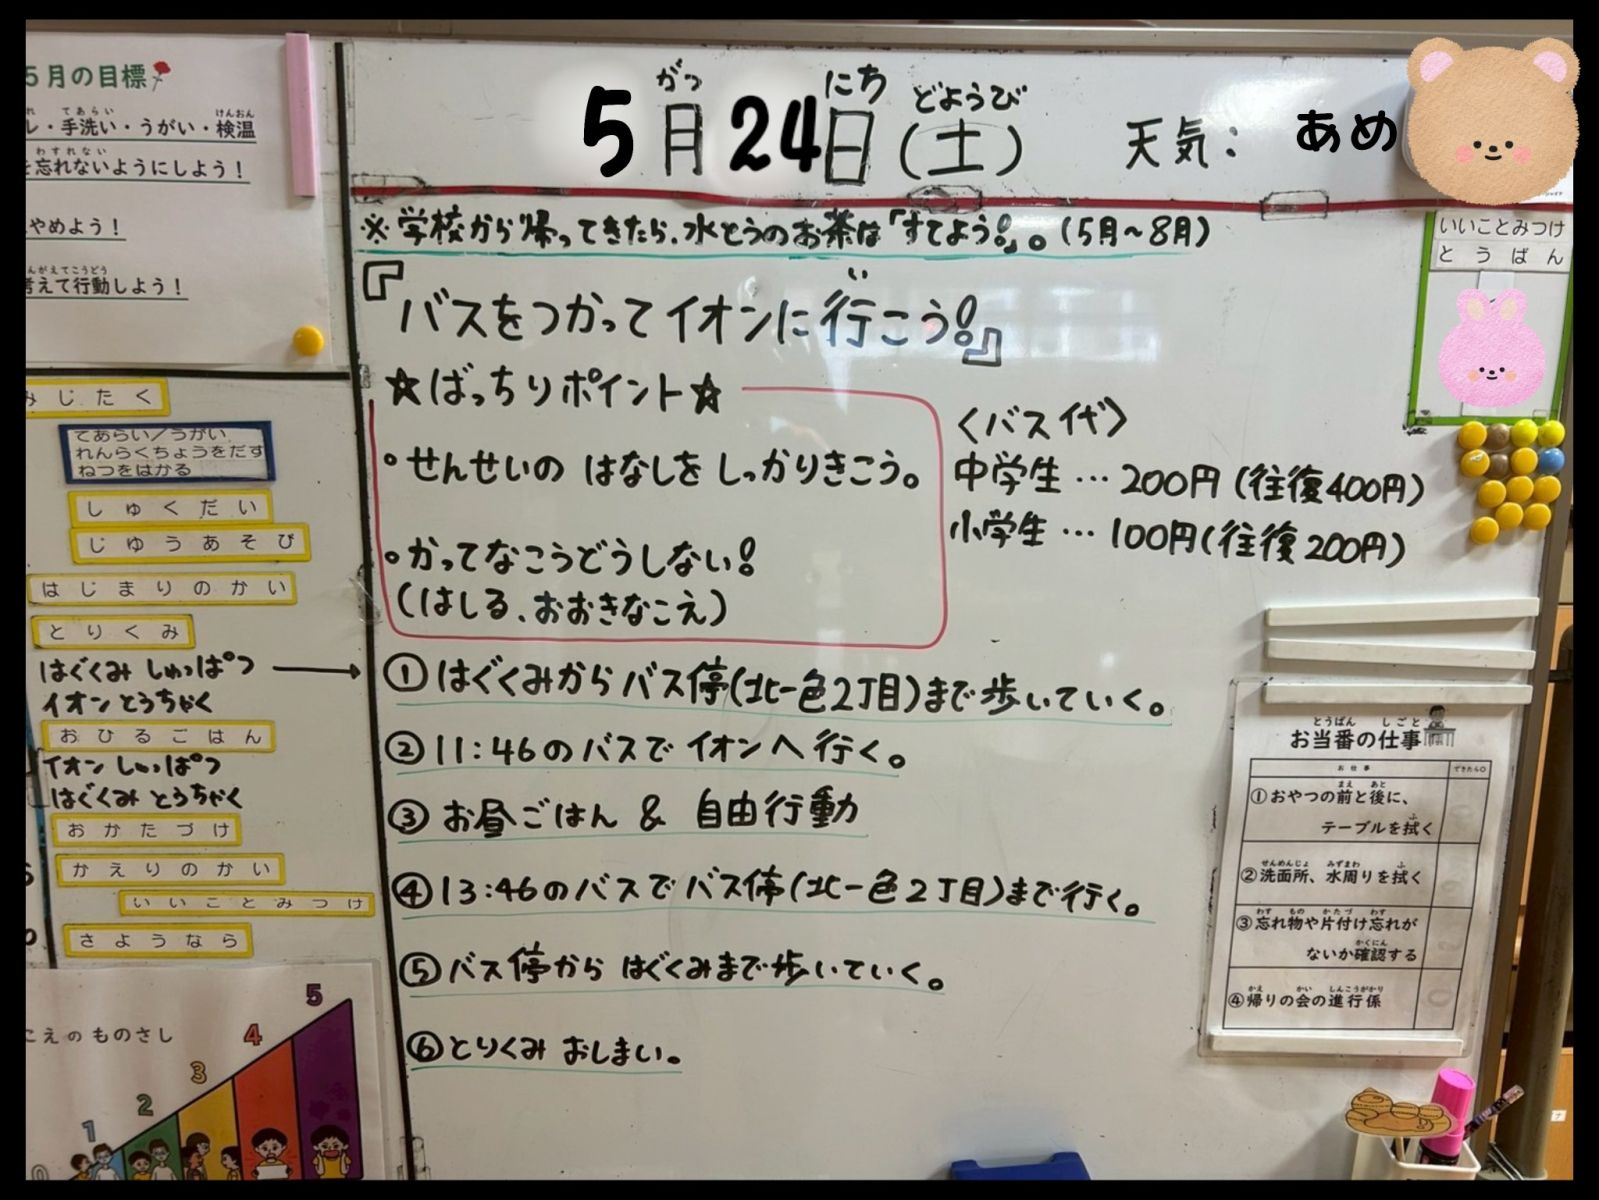 5月の目標
てあらい けんおん
・手洗い・うがい・検温
わすれない
忘れないようにしよう!
やめよう!
んがえてこうどう
考えて行動しよう!
みじたく
てあらい/うがい
れんらくちょうをだす
ねつをはかる
しゅくだい
じゆうあそび
はじまりのかい
とりくみ
はぐくみ しゅっぱつ →
イオン とうちゃく
おひるごはん
イオン しゅっぱつ
はぐくみ とうちゃく
おかたづけ
かえりのかい
いいことみつけ
さようなら
こえのものさし
0
1
2
3
4
5
がつ にち どようび
5月24日(土) 天気: あめ
※学校から帰ってきたら、水とうのお茶は「すてよう!」。(5月~8月)
い
『バスをつかってイオンに行こう!』
☆ばっちりポイント☆
・せんせいの はなしを しっかりきこう。
・かってなこうどうしない!
(はしる、おおきなこえ)
〈バス代〉
中学生…200円(往復400円)
小学生…100円(往復200円)
①はぐくみからバス停(北一色2丁目)まで歩いていく。
②11:46のバスでイオンへ行く。
③お昼ごはん & 自由行動
④13:46のバスでバス停(北一色2丁目)まで行く。
⑤バス停から はぐくみまで歩いていく。
⑥とりくみ おしまい。
いいことみつけ
とうばん
とうばん しごと
お当番の仕事
お仕事 できたら○
まえ あと
①おやつの前と後に、
ふ
テーブルを拭く
せんめんじょ みずまわ ふ
②洗面所、水周りを拭く
わす もの かたづ わす
③忘れ物や片付け忘れが
かくにん
ないか確認する
かえ かい しんこうがかり
④帰りの会の進行係